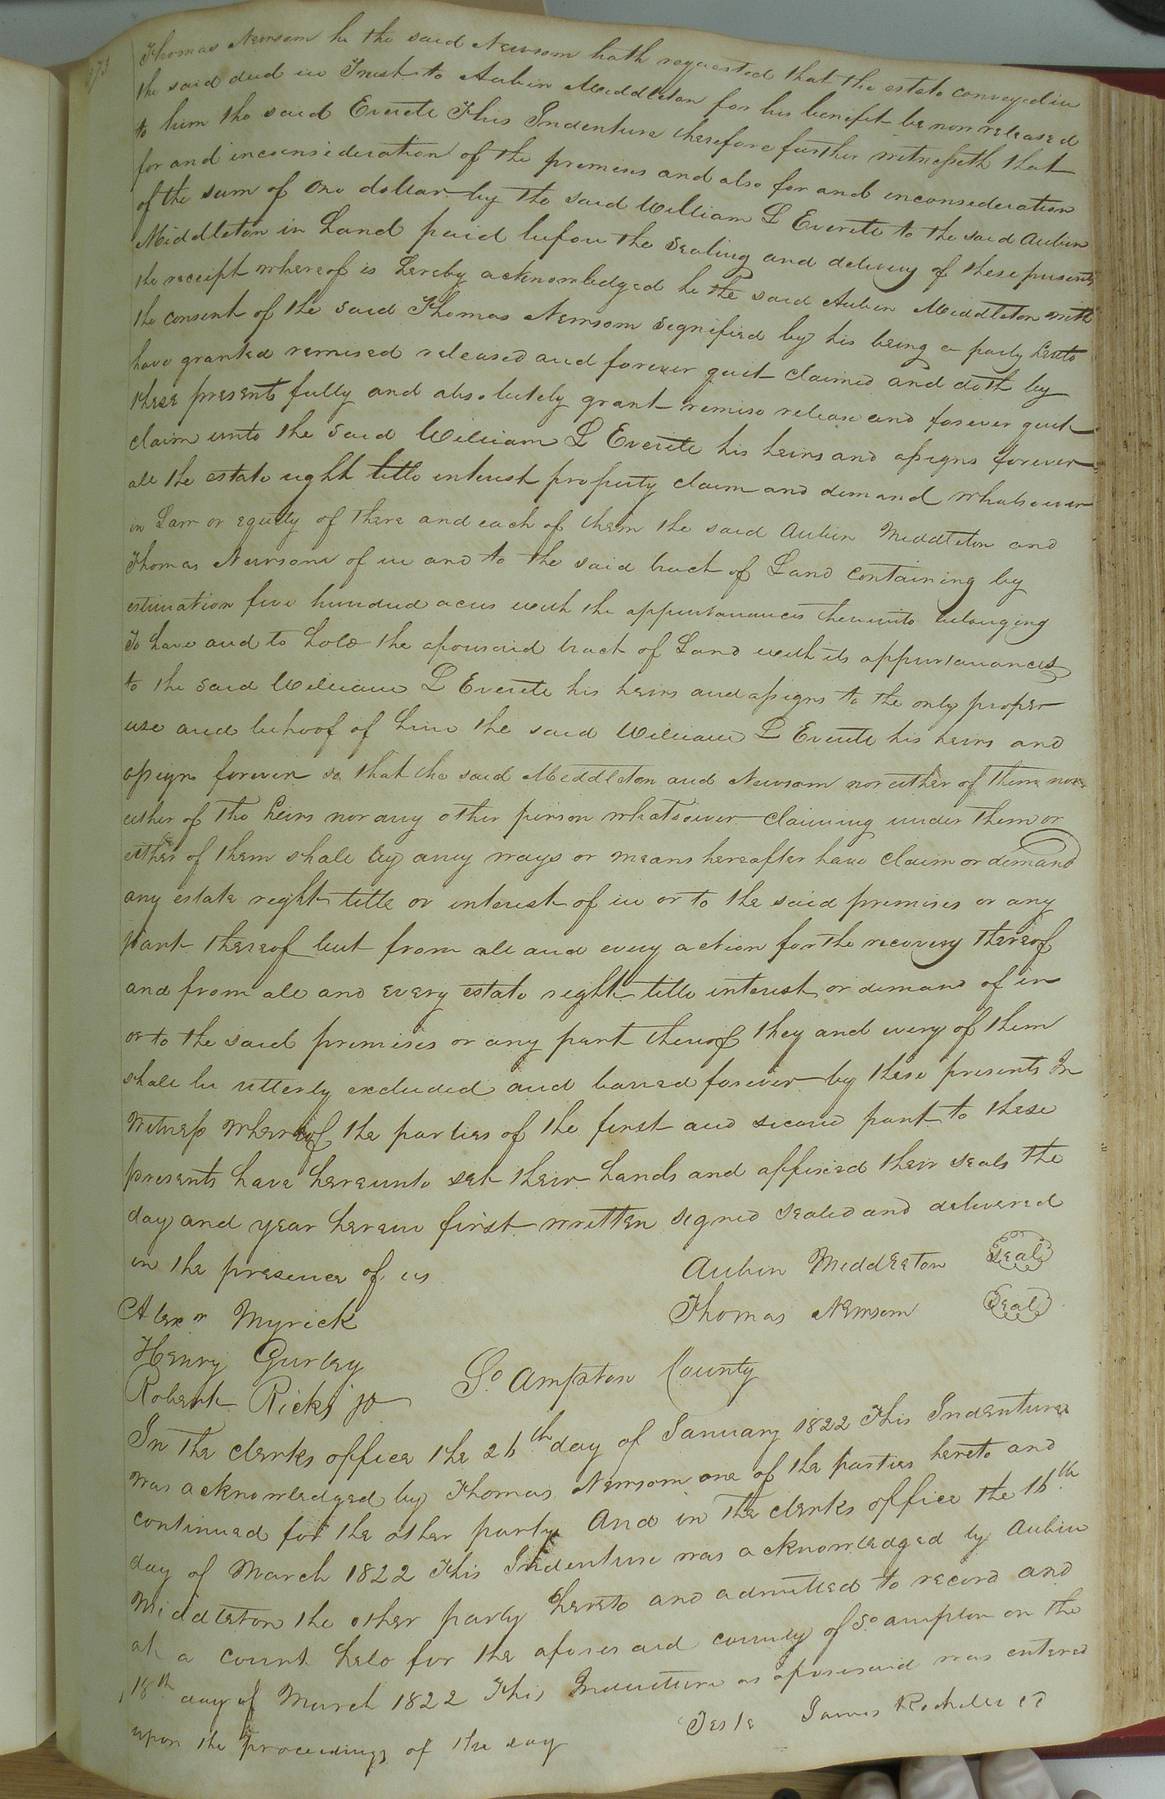 Thomas Newsom he the said Newsom hath requested that the estate conveyed in
the said deed in Trust to Aubin Middleton for his benefit be now released
to him the said Everete This Indenture therefore further witnesseth that
for and inconsideration of the premises and also for and inconsideration
of the sum of one dollar by the said William L Everete to the said Aubin
Middleton in Land paid before the sealing and delivery of these presents
the receipt whereof is hereby acknowledged he the said Aubin Middleton with
the consent of the said Thomas Newsom signified by his being a party hereto
have granted remised released and forever quit claimed and doth by
these presents fully and absolutely grant remise release and forever quit
claim unto the said William L Everete his heirs and assigns forever
all the estate right title interest property claim and demand whatsoever
in Law or equity of there and each of them the said Aubin Middleton and
Thomas Newsom of in and to the said tract of Land containing by
estimation five hundred acres with the appurtenances thereunto belonging
To have and to hold the aforesaid tract of Land with its appurtenances
to the said William L Everete his heirs and assigns to the only proper
use and behoof of him the said William L Everete his heirs and
assigns forever so that the said Middleton and Newsom nor either of them nor
either of the heirs nor any other person whatsoever claiming under them or
either of them shall by any ways or means hereafter have claim or demand
any estate right title or interest of in or to the said premises or any
part thereof but from all and every action for the recovery thereof
and from all and every estate right title interest or demand of in
or to the said premises or any part thereof they and every of them
shall be utterly excluded and barred forever by these presents In
Witness whereof the parties of the first and second part to these
presents have hereunto set their hands and affixed their seals the
day and year herein first written signed sealed and delivered
in the presence of us Aubin Middleton Seal
Alexr Myrick Thomas Newsom Seal
Henry Gurley
Robert Ricks jr So Ampton County
In the clerks office the 26th day of January 1822 This Indenture
was acknowledged by Thomas Newsom one of the parties hereto and
continued for the other party And in the clerks office the 16th
day of March 1822 This Indenture was acknowledged by Aubin
Middleton the other party hereto and admitted to record and
at a Court held for the aforesaid county of So ampton on the
18th day of March 1822 This Indenture as aforesaid was entered
upon the proceedings of the day Teste James Rochelle